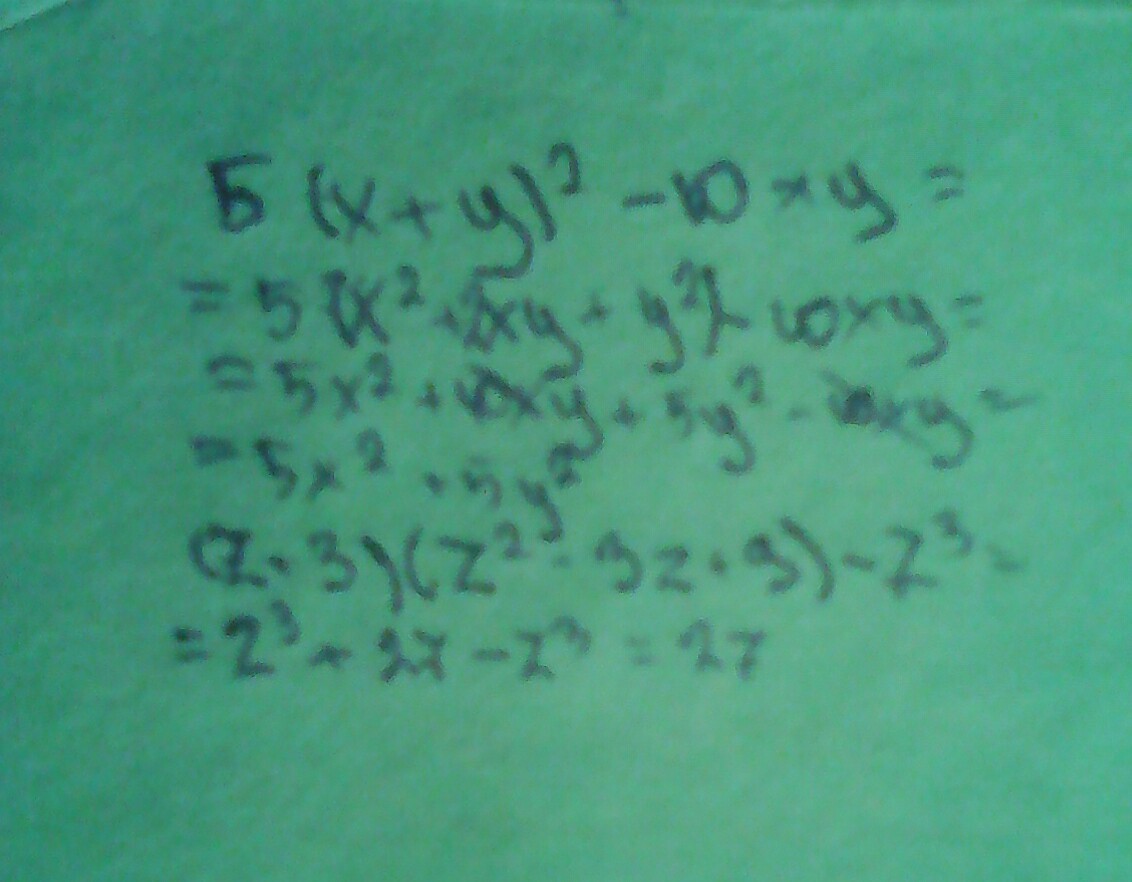 5 (x+y)² - 10xy =
= 5(x² + 2xy + y²) - 10xy =
= 5x² + 10xy + 5y² - 10xy =
= 5x² + 5y²
(z + 3)(z² - 3z + 9) - z³ =
= z³ + 27 - z³ = 27